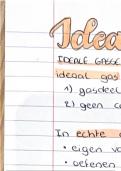 Idea
IDEALE GASSE
ideaal gas
1) gasdeel
2) geen c
In echte
• eigen vo
• oefenen